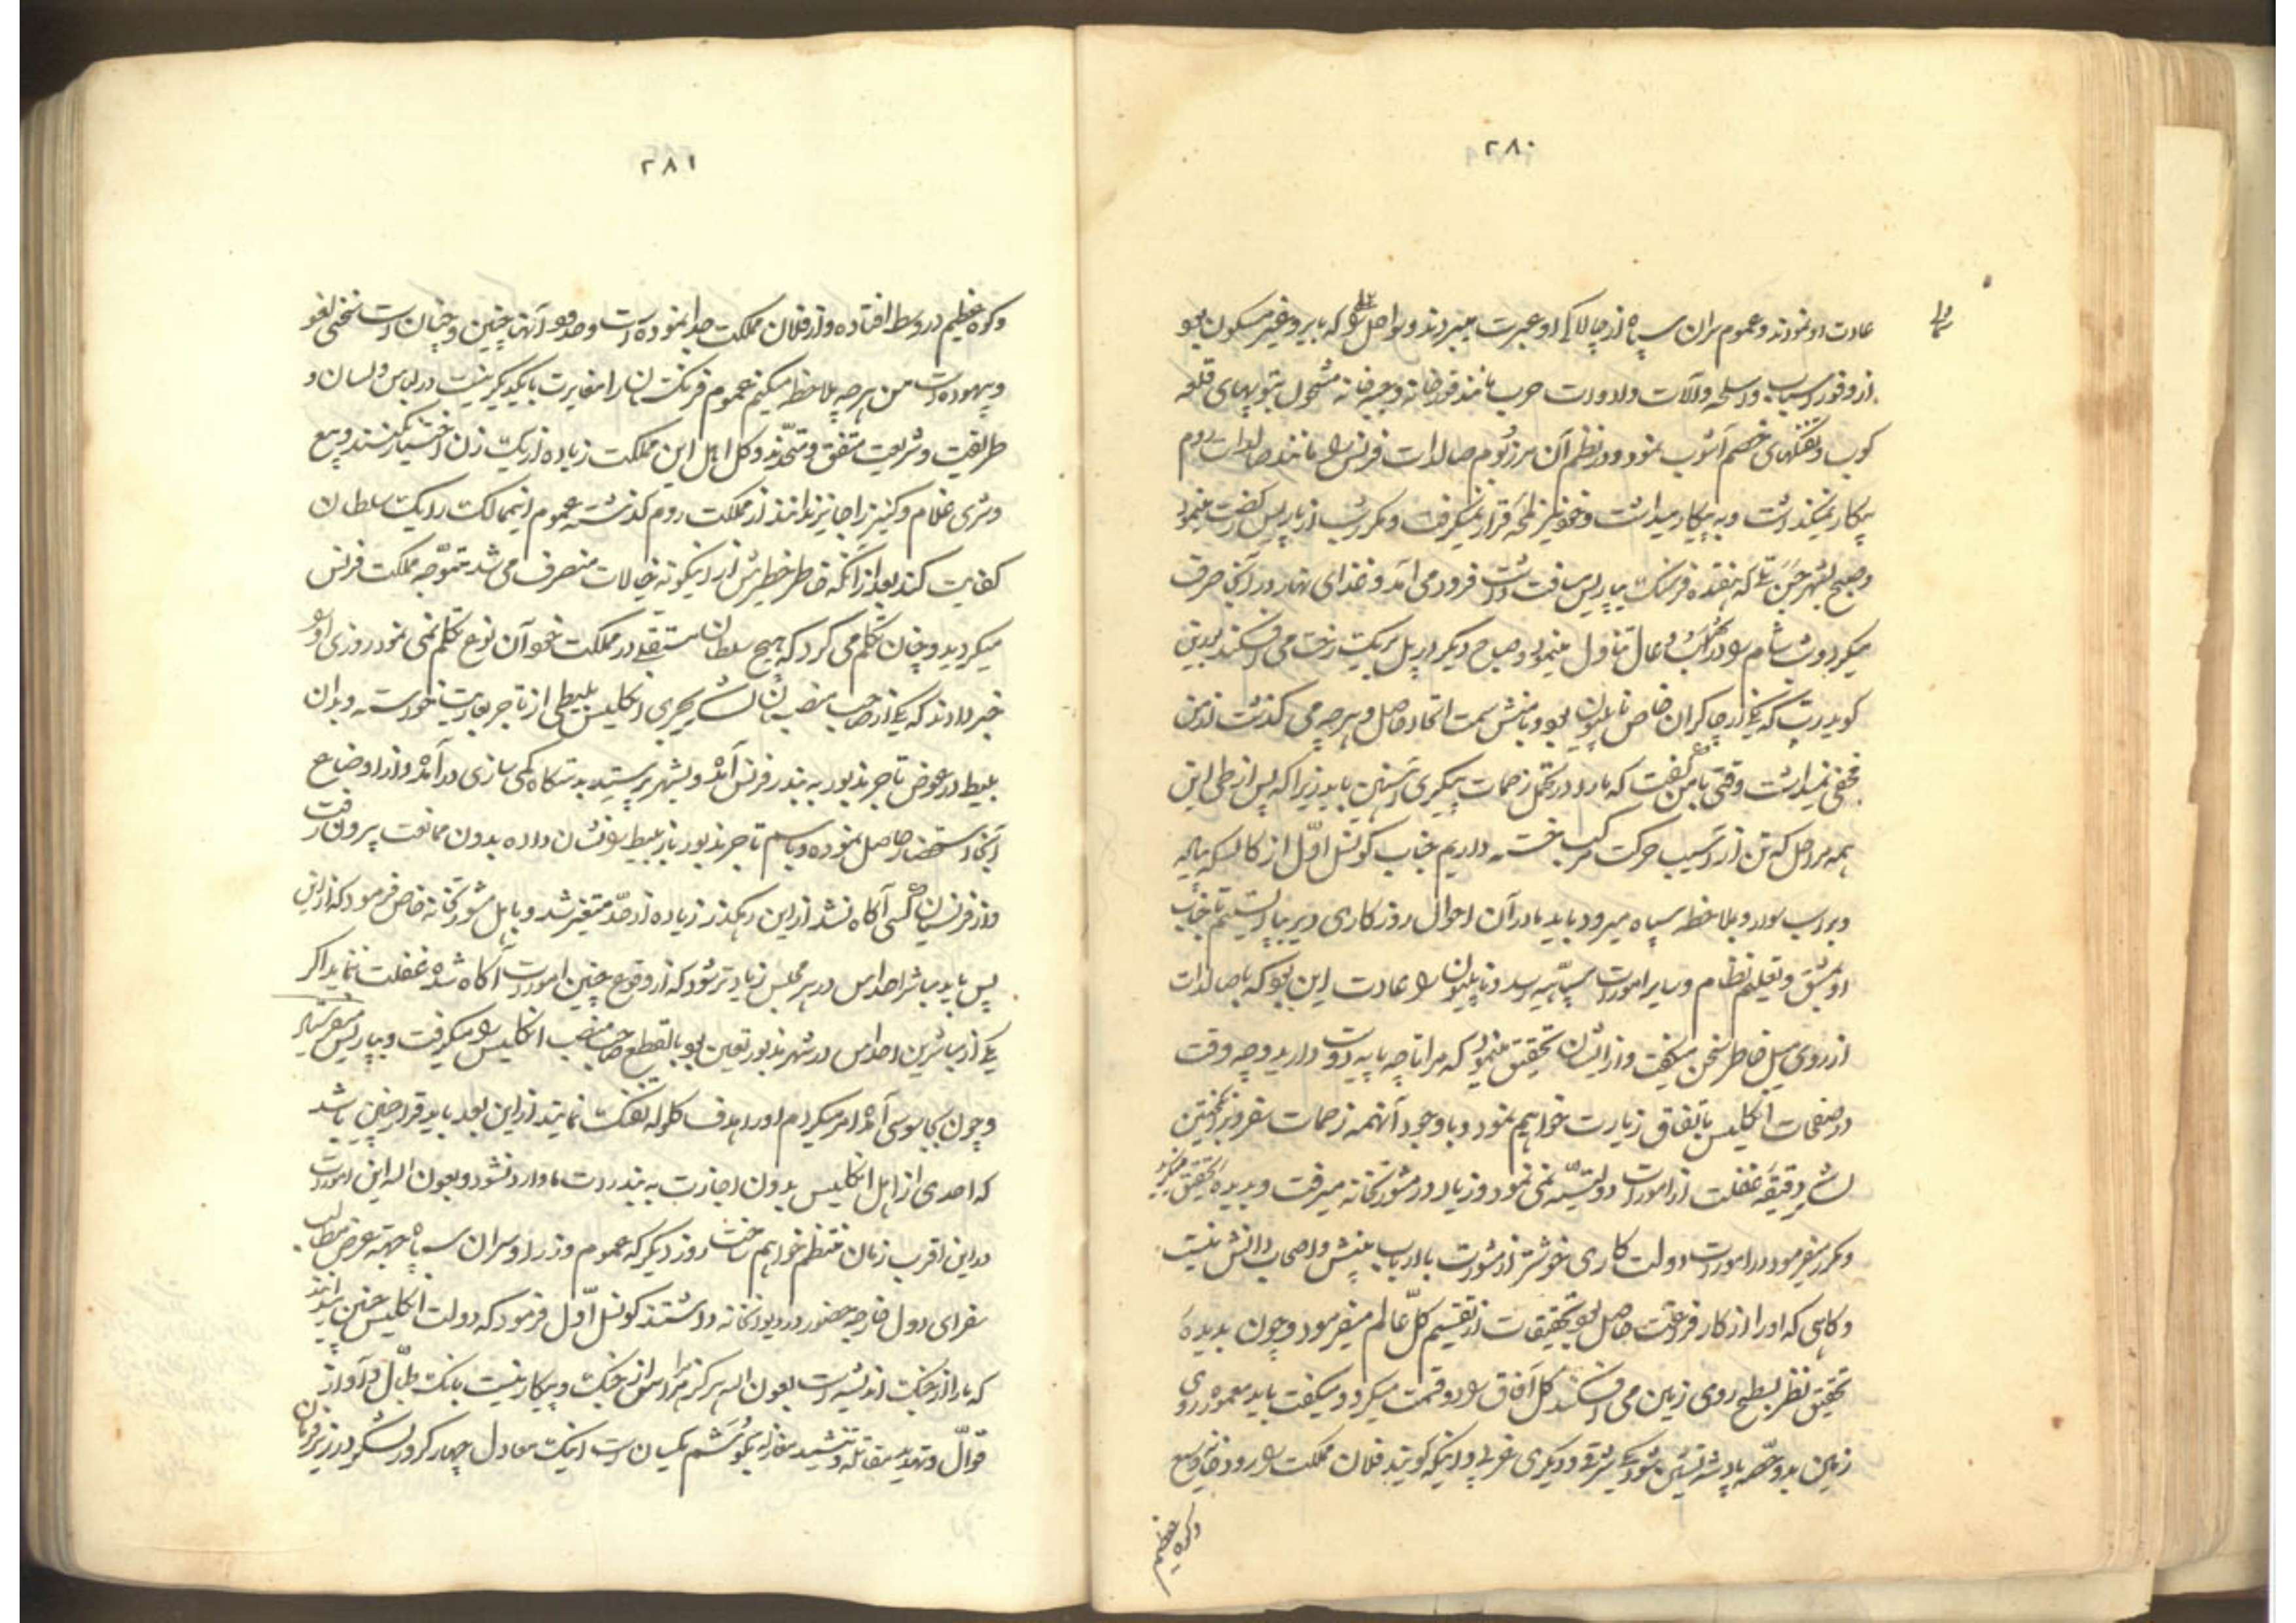 ۲۸۰
عادت او نمودند و عموم سران سپاه از چالاکی او عبرت میبردند و سواحلی را که بایر و غیر مسکون بود
از وفور اسباب و اسلحه و آلات و ادوات حرب مانند قورخانه و جبه‌خانه مشحون بتوپهای قلعه
کوب و تفنگهای خصم آشوب نمود و در نظم آن مرز و بوم صالدات فرنس را مانند صالدات روم
بیکار نمیگذاشت و به پیکار میداشت و خود نیز لمحه قرار نمیگرفت و مکرر شب از پاریس نهضت مینمود
و صبح بشهر که هفده فرسنگ بپاریس مسافت داشت فرود می آمد و غذای نهار در آنجا صرف
میکرد و شب شام را در تناول مینمود و صباح دیگر در پل بریک رخت می افکند بورین
گوید رپ که یکی از چاکران خاص ناپلیون بود و با منش سمت اتحاد حاصل و هرچه می گذشت از من
مخفی نمیداشت وقتی با من گفت که ما را در تحمل زحمات پیکری آهنین باید زیرا که پس از طی این
همه مراحل که تن از آسیب حرکت مرکب خسته داریم جناب کونسل اول از کالسکه پیاده
و بر اسب سوار و بملاحظه سپاه میرود باید ما در آن احوال روزگاری دیر بپا ایستیم تا جناب
او بمشق و تعلیم نظام و سایر امورات سپاهیه برسد و ناپلیون را عادت این بود که با صالدات
از روی میل خاطر سخن میگفت و از ایشان تحقیق مینمود که مرا تا چه پایه دوست دارید و چه وقت
در صفحات انگلیس باتفاق زیارت خواهیم نمود و با وجود آنهمه زحمات سفر و برانگیختن
لشکر دقیقه غفلت از امورات دولتیه نمی نمود و زیاد در مشورتخانه میرفت و بدیده تحقیق میدید
و مکرر میفرمود در امورات دولت کاری خوشتر از مشورت با ارباب بینش و اصحاب دانش نیست
و گاهی که او را از کار فراغت حاصل بود تحقیقات از تقسیم کل عالم میفرمود و چون بدیده
تحقیق نظر بسطح روی زمین می افکند کل آفاق را دو قسمت میکرد و میگفت باید معموره روی
زمین بدو حصه یکی شرقی و دیگری غربی و اینکه گویند فلان مملکت را رودخانه وسیع
وکوه عظیم
۲۸۱
و کوه عظیم در وسط افتاده و از فلان مملکت جدا نموده است و حدود آنها چنین و چنان است سخنی لغو
و بیهوده است من هرچه ملاحظه میکنم عموم فرنگستان را مغایرت با یکدیگر نیست در لباس و لسان و
طریقت و شریعت متفق و متحدند و کل اهل این مملکت زیاده از یک زن اختیار نکنند و بیع
و شری غلام و کنیز را جایز ندانند از مملکت روم گذشته عموم این ممالک را یک سلطان
کفایت کند بعد از آنکه خاطر خطیرش از اینگونه خیالات منصرف می شد متوجه مملکت فرنس
میگردید و چنان تکلم می کرد که هیچ سلطان مستقلی در مملکت خود آن نوع تکلم نمی نمود روزی او را
خبر دادند که یکی از صاحب منصبان لشکر بحری انگلیس بلیطی از تاجر بعاریت خواسته و بدان
بلیط در عوض تاجر مزبور به بندر فرنس آمده و بشهر برست بدستگاه کمی سازی در آمده و از اوضاع
آنجا استحضار حاصل نموده و باسم تاجر مزبور باز بلیط را نشان داده بدون ممانعت بیرون رفت
و از فرنسیان کسی آگاه نشد از این رهگذر زیاده از حد متغیر شد و با اهل مشورتخانه خاص فرمود که از این
پس باید مباشر احداس در هر مجلس زیادتر شود که از وقوع چنین امورات آگاه شده غفلت ننماید اگر
یکی از مباشرین احداس در شهر مزبور تعین بود بالقطع صاحب منصب انگلیس را میگرفت و بپاریس میفرستاد
و چون بجاسوسی آمده امر میکردم او را هدف گلوله تفنگ نمایند از این بعد باید قرار چنین باشد
که احدی از اهل انگلیس بدون اجازت به بندرات ما وارد نشود و بعون اله این امورات
در این اقرب زمان منتظم خواهم ساخت روز دیگر که عموم وزرا و سران سپاه بجهه عرض مطالب
سفرای دول خارجه حضور در دیوانخانه داشتند کونسل اول فرمود که دولت انگلیس چنین
که ما را از جنگ اندیشه است بعون اله هرگز مرا هراس از جنگ و پیکار نیست بانگ طبال و آواز
قوال و تهدید مقاتله و بگوشم یکسان است اینک معادل چهار کرور لشکر در زیر فرمان